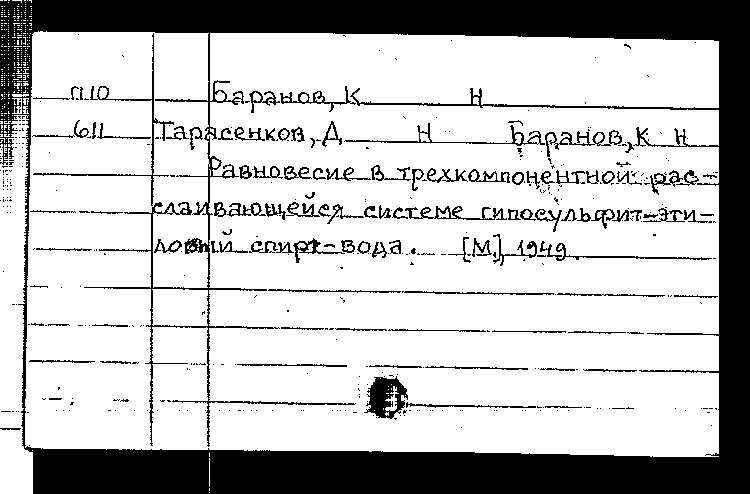 П10 Баранов, К Н
611 Тарасенков, Д Н Баранов, К Н
Равновесие в трехкомпонентной рас-
слаивающейся системе гипосульфит-эти-
ловый спирт-вода. [М.], 1949.